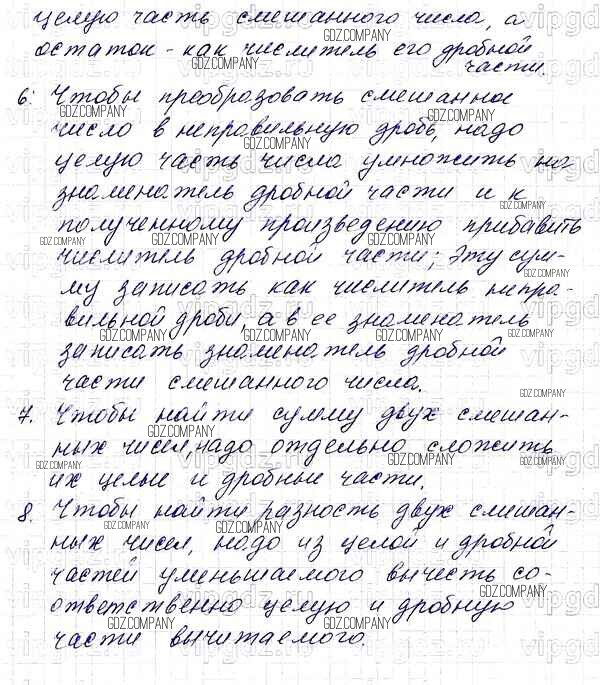 целую часть смешанного числа, а
остаток - как числитель его дробной
части.
6. Чтобы преобразовать смешанное
число в неправильную дробь, надо
целую часть числа умножить на
знаменатель дробной части и к
полученному произведению прибавить
числитель дробной части; Эту сум-
му записать как числитель непра-
вильной дроби, а в ее знаменатель
записать знаменатель дробной
части смешанного числа.
7. Чтобы найти сумму двух смешан-
ных чисел, надо отдельно сложить
их целые и дробные части.
8. Чтобы найти разность двух смешан-
ных чисел, надо из целой и дробной
частей уменьшаемого вычесть со-
ответственно целую и дробную
части вычитаемого.